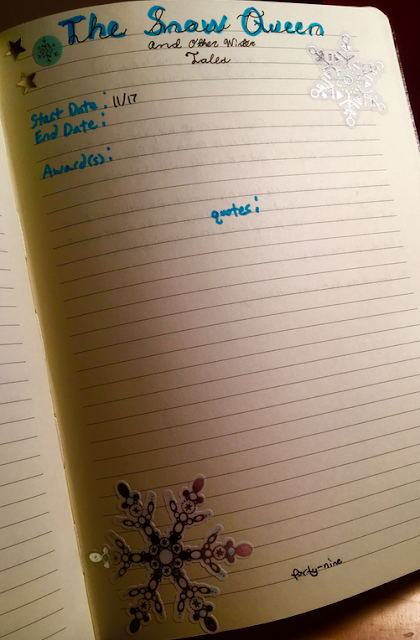 The Snow Queen
and Other Winter
Tales
Start Date: 11/17
End Date:
Award(s):
quotes:
forty-nine